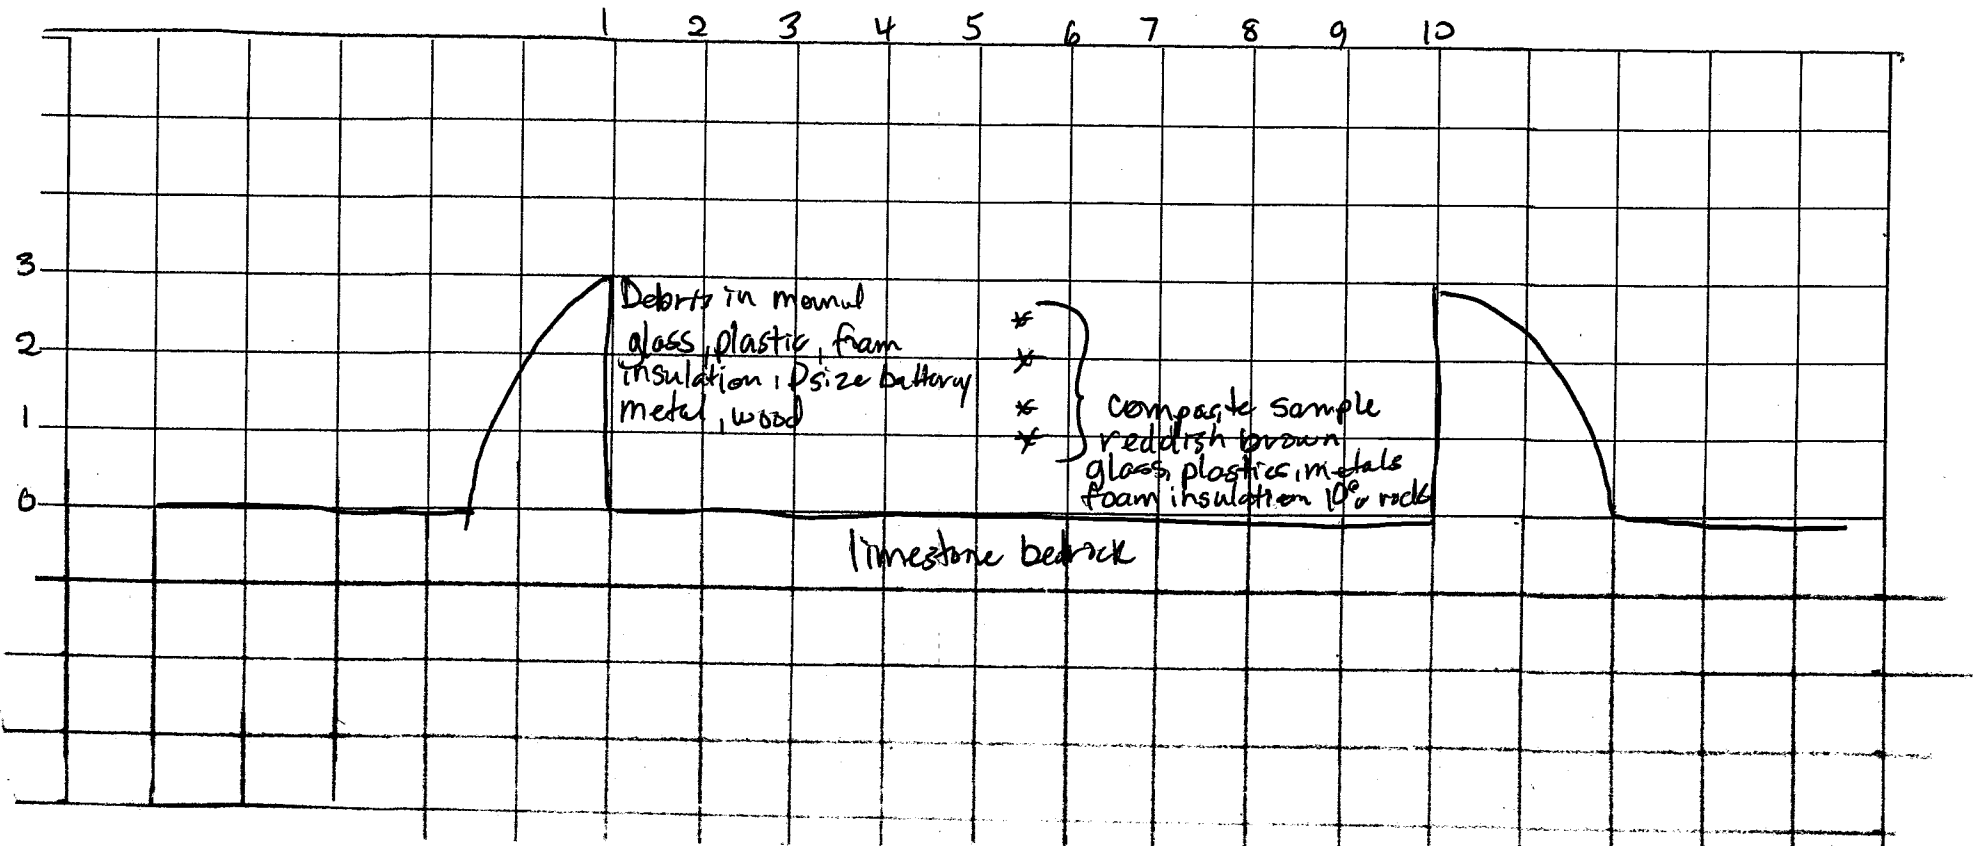 1 2 3 4 5 6 7 8 9 10
3
2
1
0
Debris in mound
glass, plastic, foam
insulation, D size battery
metal, wood
composite sample
reddish brown
glass, plastics, metals
foam insulation 10% rock
limestone bedrock